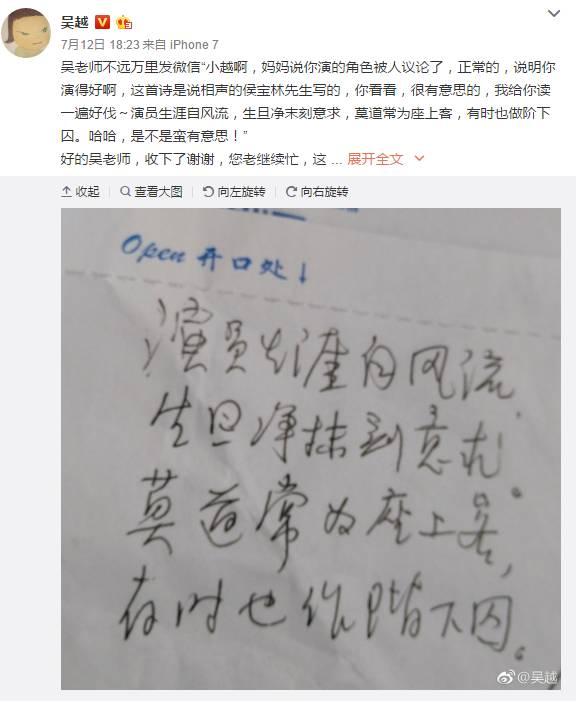 吴越
7月12日 18:23 来自 iPhone 7
吴老师不远万里发微信“小越啊，妈妈说你演的角色被人议论了，正常的，说明你
演得好啊，这首诗是说相声的侯宝林先生写的，你看看，很有意思的，我给你读
一遍好伐～演员生涯自风流，生旦净末刻意求，莫道常为座上客，有时也做阶下
囚。哈哈，是不是蛮有意思！”
好的吴老师，收下了谢谢，您老继续忙，这 ... 展开全文
收起 查看大图 向左旋转 向右旋转
Open 开口处↓
演员生涯自风流，
生旦净抹刻意求。
莫道常为座上客，
有时也作阶下囚。
@吴越